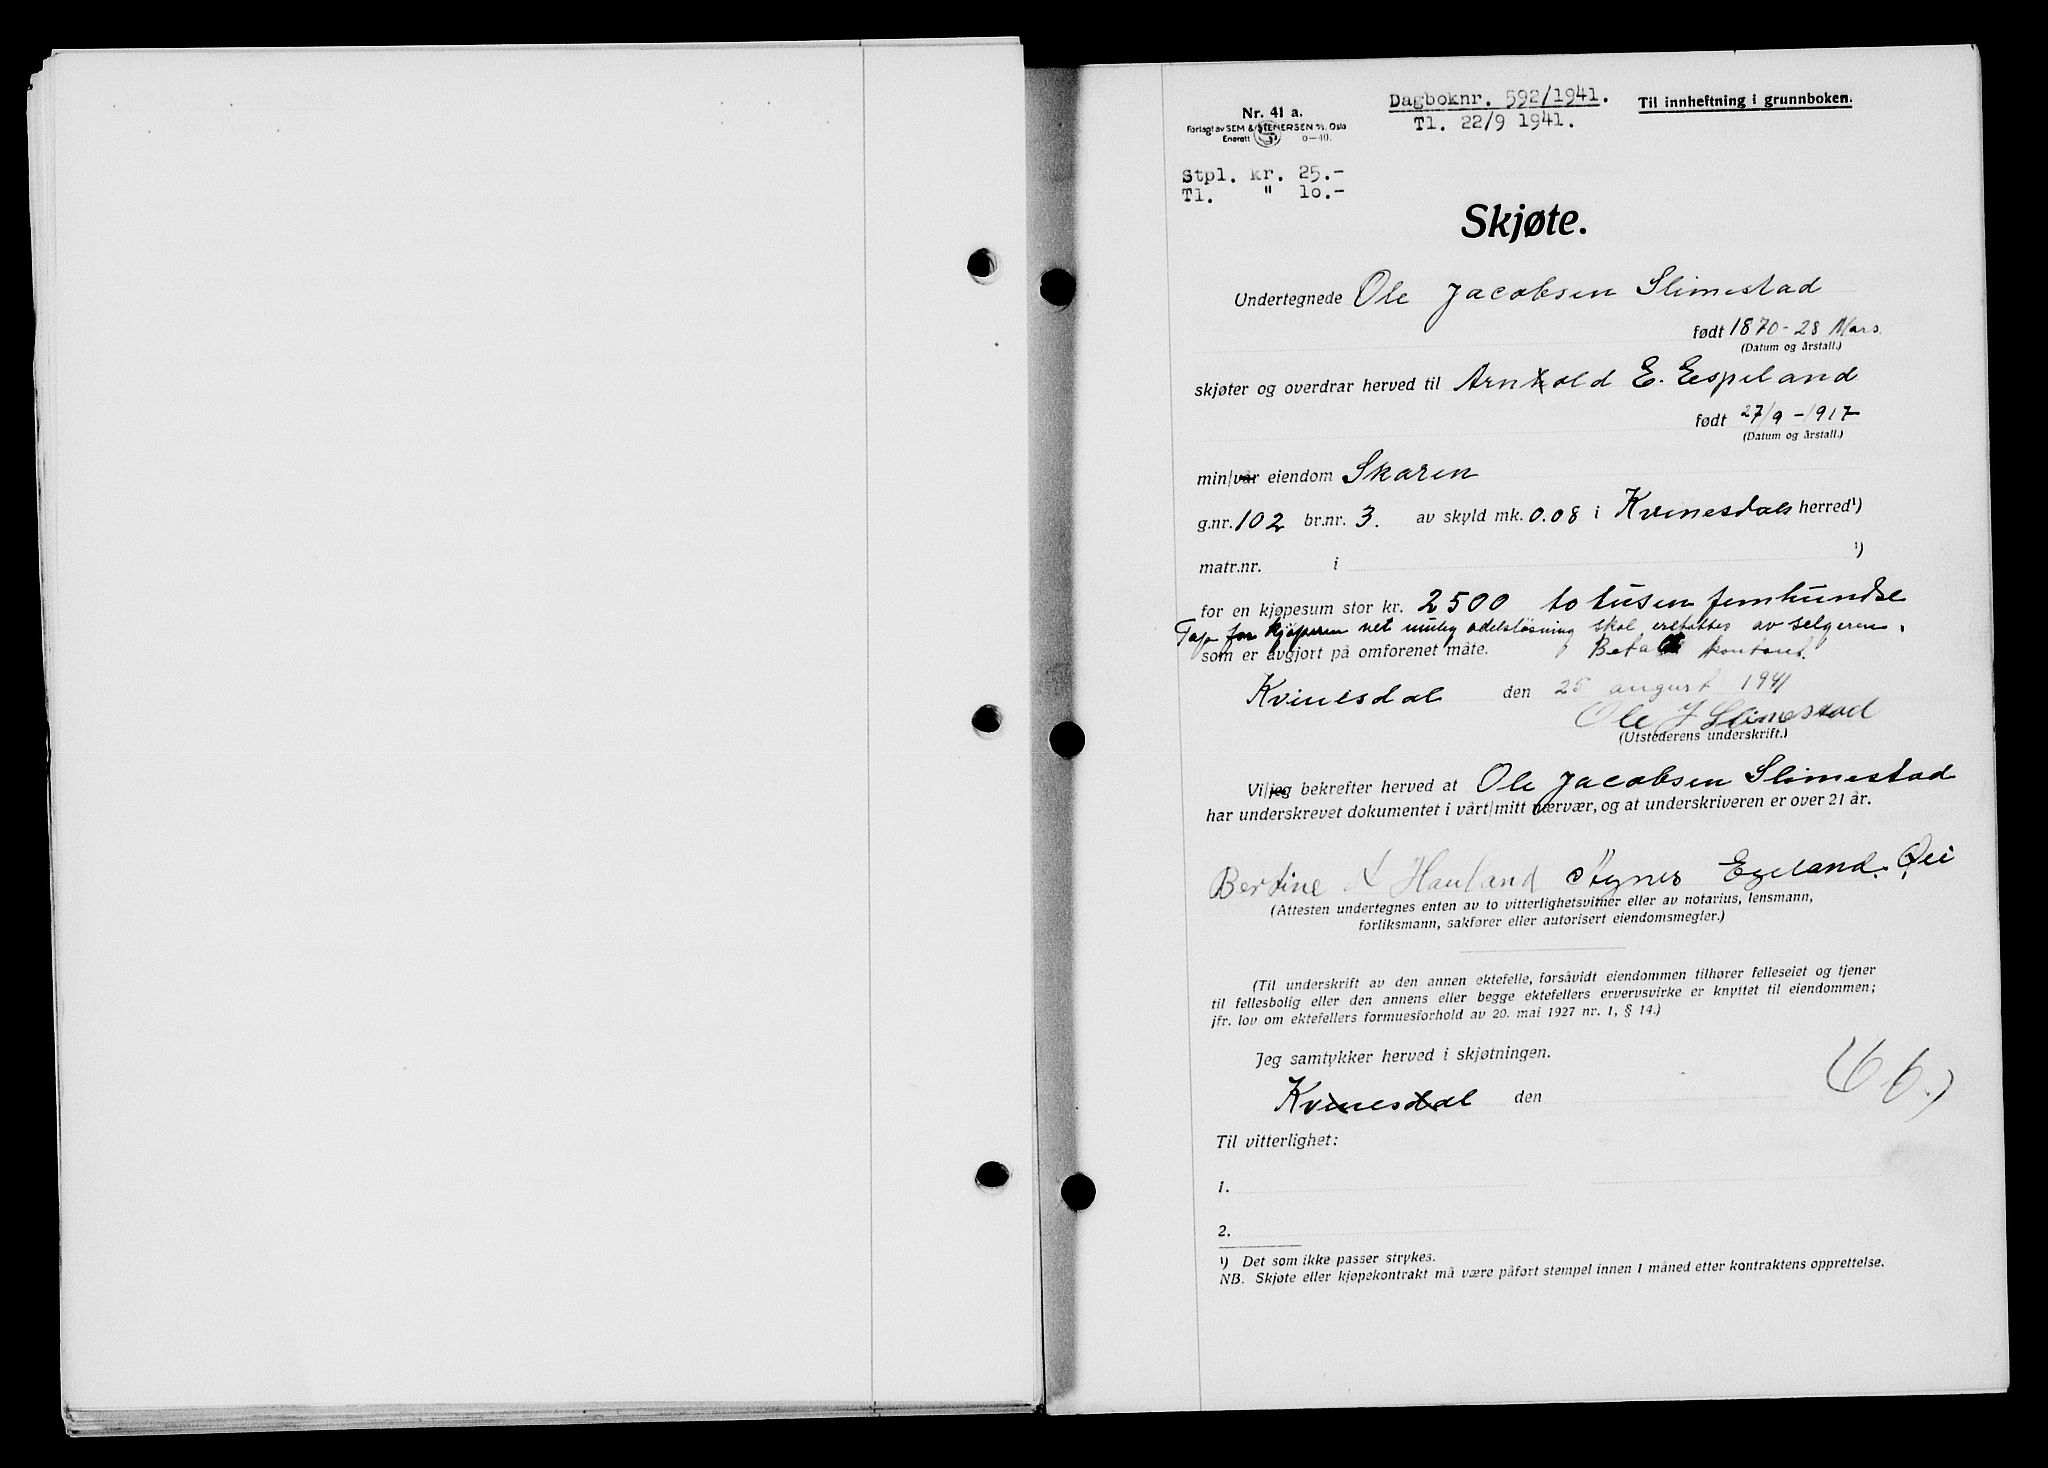 Nr. 41 a.
Forlagt av SEM & STENERSEN A/S, Oslo
Enerett 6—40.
Dagboknr. 592/1941.
Tl. 22/9 1941.
Til innheftning i grunnboken.
Stpl. kr. 25.-
Tl. " 10.-
Skjøte.
Undertegnede Ole Jacobsen Slimestad
født 1870 - 28 Mars
(Datum og årstall.)
skjøter og overdrar herved til Arnold E. Eespeland
født 27/9 - 1917
(Datum og årstall.)
min/vår eiendom Skaren
g.nr. 102 br.nr. 3. av skyld mk. 0.08 i Kvinesdals herred¹)
matr.nr. i ¹)
for en kjøpesum stor kr. 2500 to tusen femhundse
Tap for kjøperen vet mulig odelsløsning skal erstattes av selgeren.
som er avgjort på omforenet måte. Betalt kontant.
Kvinesdal den 25 august 1941
Ole J Slimestad
(Utstederens underskrift.)
Vi/jeg bekrefter herved at Ole Jacobsen Slimestad
har underskrevet dokumentet i vårt/mitt nærvær, og at underskriveren er over 21 år.
Bertine Hauland Agnes Egeland.
(Attesten undertegnes enten av to vitterlighetsvitner eller av notarius, lensmann,
forliksmann, sakfører eller autorisert eiendomsmegler.)
(Til underskrift av den annen ektefelle, forsåvidt eiendommen tilhører felleseiet og tjener
til fellesbolig eller den annens eller begge ektefellers ervervsvirke er knyttet til eiendommen;
jfr. lov om ektefellers formuesforhold av 20. mai 1927 nr. 1, § 14.)
Jeg samtykker herved i skjøtningen.
Kvinesdal den
Til vitterlighet:
1.
2.
¹) Det som ikke passer strykes.
NB. Skjøte eller kjøpekontrakt må være påført stempel innen 1 måned etter kontraktens opprettelse.